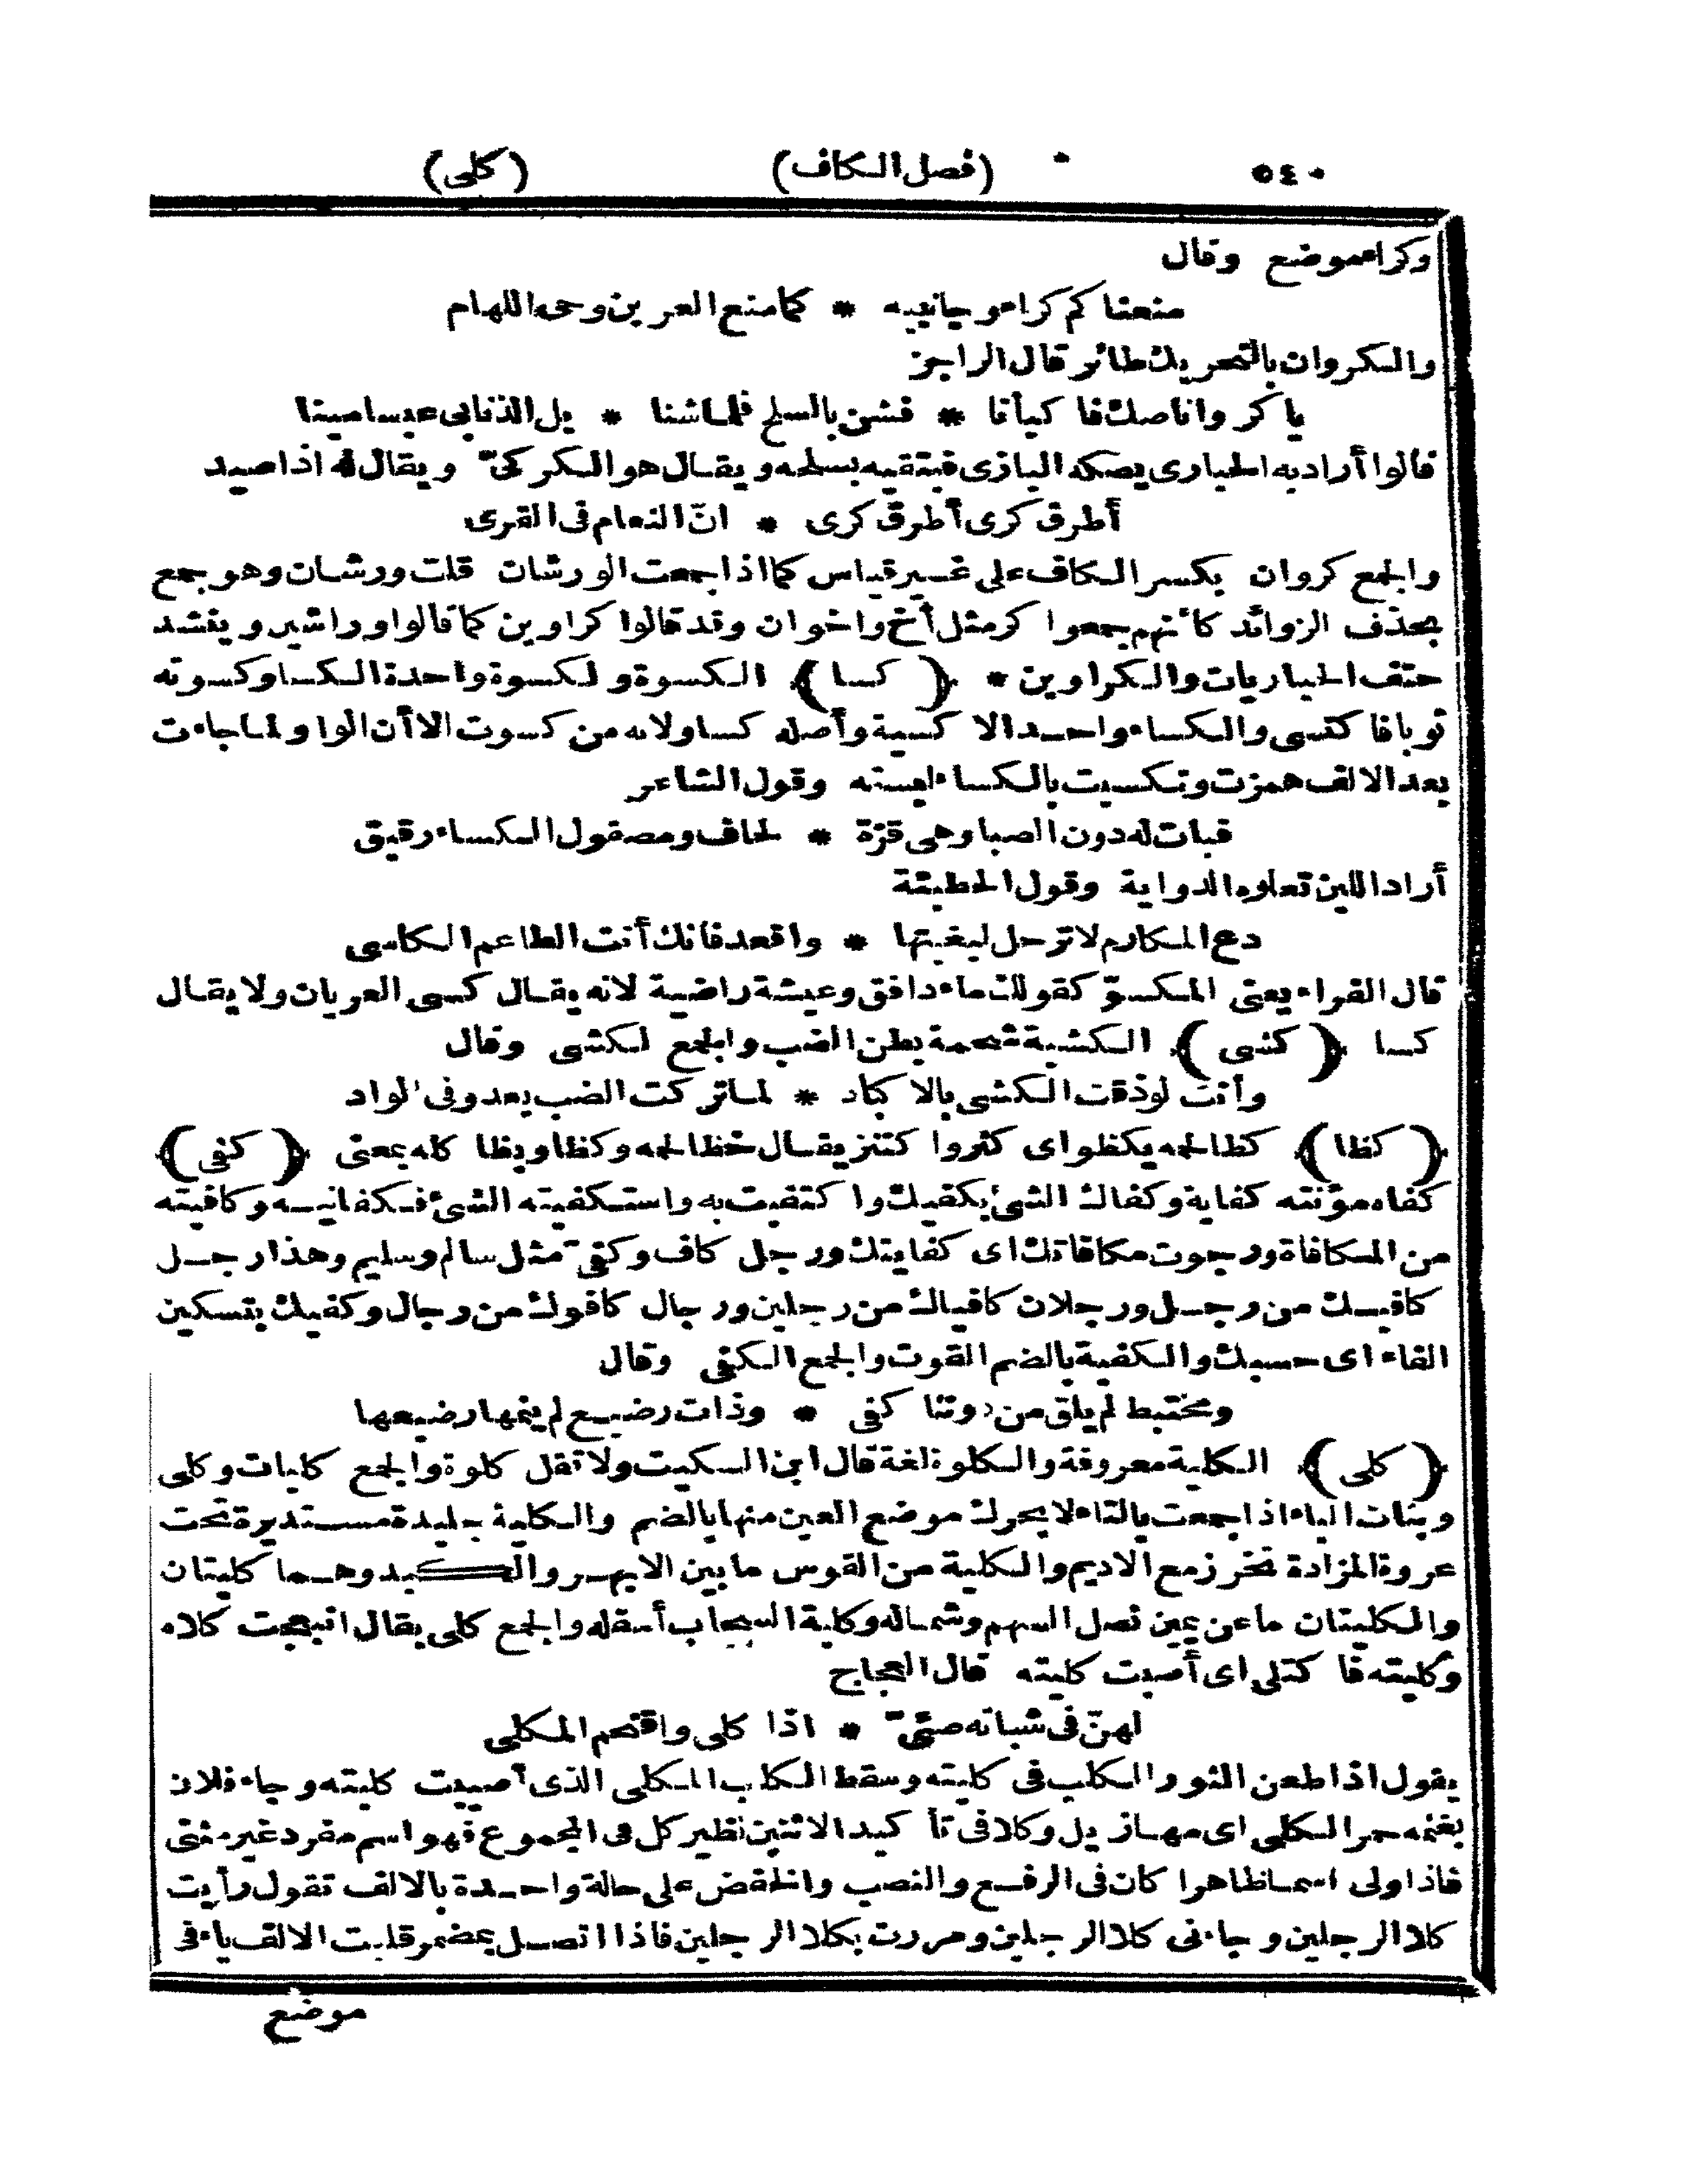 ٥٤٠ (فصل الكاف) (كلى)
وكراء موضع وقال
منعنا كم كراء وجانبيه * كما منع العرين وحى اللهام
والكروان بالتحريك طائر قال الراجز
يا كروانا صك فا كبأنا * فشن بالسلح فلما شنا * بل الذنابى عبسا مبنا
قالوا أراد به الحبارى يصكه البازى فيتقيه بسلحه ويقال هو الكركىّ ويقال له اذا صيد
أطرق كرى أطرق كرى * انّ النعام فى القرى
والجمع كروان بكسر الكاف على غير قياس كما اذا جمعت الورشان قلت ورشان وهو جمع
بحذف الزوائد كأنهم جمعوا كرمثل أخ واخوان وقد قالوا كراوين كما قالوا وراشين وينشد
حتف الحباريات والكراوين * (كسا) الكسوة والكسوة واحدة الكسا وكسوته
ثوبا فا كتسى والكساء واحد الا كسية وأصله كساو لانه من كسوت الا أن الوا ولما جاءت
بعد الالف همزت وتكسيت بالكساء لبسته وقول الشاعر
فبات له دون الصبا وهى قرّة * لحاف ومصقول الكساء رقيق
أراد اللبن تعلوه الدواية وقول الحطيئة
دع المكارم لا ترحل لبغيتها * واقعد فانك أنت الطاعم الكاسى
قال الفراء يعنى المكسوّ كقولك ماء دافق وعيشة راضية لانه يقال كسى العريان ولا يقال
كسا (كشى) الكشية شحمة بطن الضب والجمع لكشى وقال
وأنت لو ذقت الكشى بالا كباد * لما تركت الضب يعدو فى الواد
(كظا) كظا لحمه يكظو اى كثر وا كتنز يقال خظا لحمه وكظا وبظا كله بمعنى (كفى)
كفاه مؤنته كفاية وكفاك الشئ يكفيك وا كتفيت به واستكفيته الشئ فكفانيه وكافيته
من المكافاة ورجوت مكافاتك اى كفايتك ورجل كاف وكفىّ مثل سالم وسليم وهذا رجل
كافيك من رجل ورجلان كافياك من رجلين ورجال كافوك من رجال وكفيك بتسكين
الفاء اى حسبك والكفية بالضم القوت والجمع الكفى وقال
ومختبط لم يلق من دوننا كفى * وذات رضيع لم ينمها رضيعها
(كلى) الكلية معروفة والكلوة لغة قال ابن السكيت ولا تقل كلوة والجمع كليات وكلى
وبنات الياء اذا جمعت بالتاء لا يحرك موضع العين منها بالضم والكلية جليدة مستديرة تحت
عروة المزادة تخرز مع الاديم والكلية من القوس ما بين الابهر والكبد وهما كليتان
والكليتان ما عن يمين نصل السهم وشماله وكلية السحاب أسفله والجمع كلى يقال انبعجت كلاه
وكليته فا كتلى اى أصبت كليته قال العجاج
لهنّ فى شباته صئىّ * اذا كلى واقتحم المكلى
يقول اذا طعن الثور الكلب فى كليته وسقط الكلب المكلى الذى أصيبت كليته وجاء فلان
بغنمه حمر الكلى اى مهازيل وكلا فى تأ كيد الاثنين نظير كل فى المجموع فهو اسم مفرد غير مثنى
فاذا ولى اسما ظاهرا كان فى الرفع والنصب والخفض على حالة واحدة بالالف تقول رأيت
كلا الرجلين وجاءنى كلا الرجلين ومررت بكلا الرجلين فاذا اتصل بمضمر قلبت الالف ياء فى
موضع